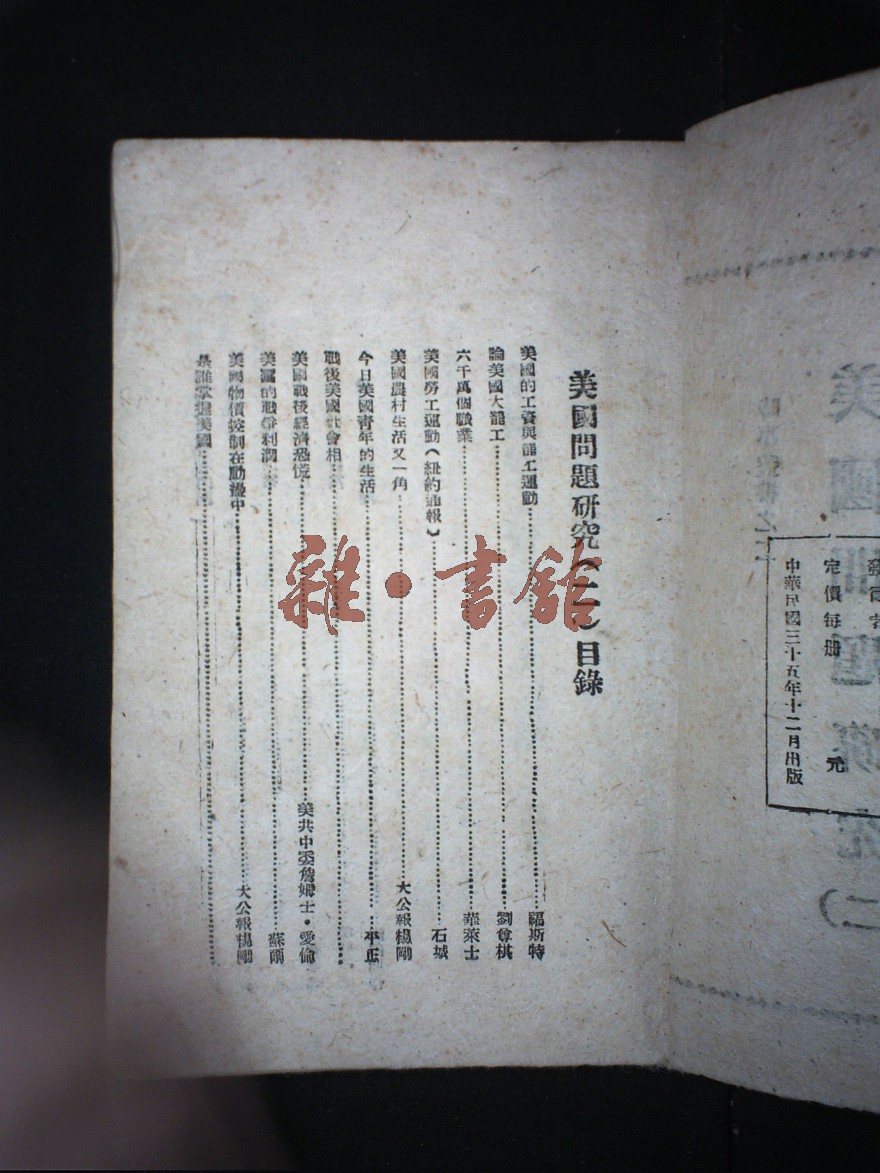 發行者
定價每册 元
中華民國三十五年十二月出版
美國問題研究(二)目錄
美國的工資與罷工運動……福斯特
論美國大罷工……劉尊棋
六千萬個職業……華萊士
美國勞工運動(紐約通報)……石城
美國農村生活又一角……大公報楊剛
今日美國靑年的生活……平正
戰後美國社會相……
美國戰後經濟恐慌……美共中委詹姆士·愛倫
美國的戰爭利潤……蘇爾
美國物價控制在動盪中……大公報楊剛
是誰掌握美國……
雜·書館